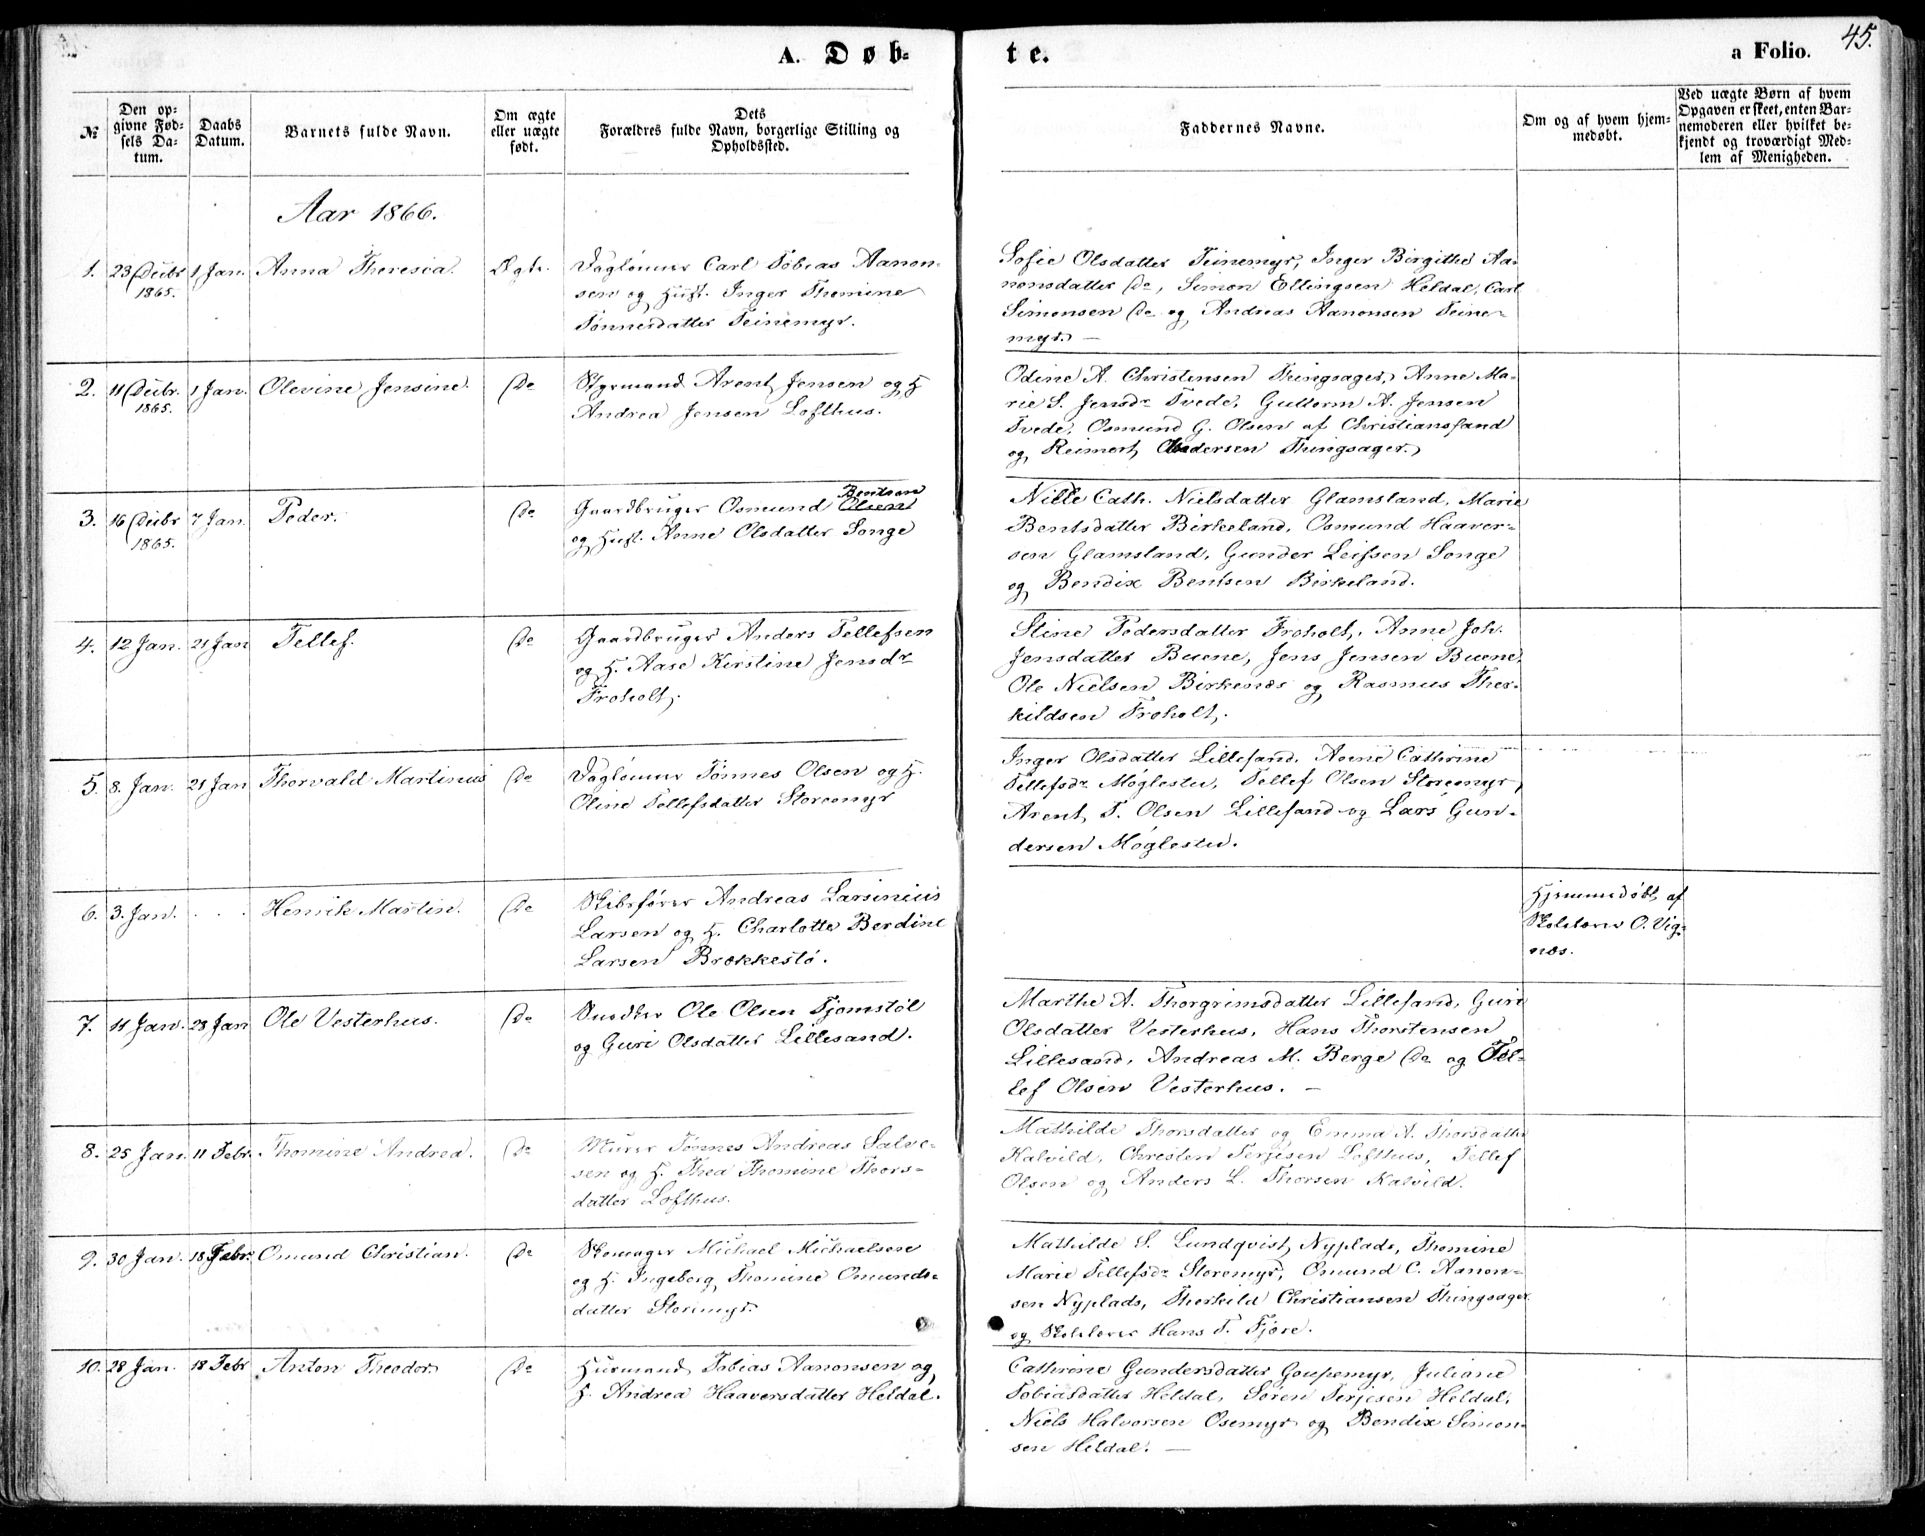 45.
A. Døb-
te.
a Folio.
№
Den op-
givne Fød-
sels Da-
tum.
Daabs
Datum.
Barnets fulde Navn.
Om ægte
eller uægte
født.
Dets
Forældres fulde Navn, borgerlige Stilling og
Opholdssted.
Faddernes Navne.
Om og af hvem hjem-
medøbt.
Ved uægte Børn af hvem
Opgaven er skeet, enten Bar-
nemoderen eller hvilket be-
kjendt og troværdigt Med-
lem af Menigheden.
Aar 1866.
1. 23 Decbr 1865. 1 Jan. Anna Theresia. Ægte.
Dagleiner Carl Tobias Aanon-
sen og Hust. Inger Thomine
Tønnesdatter Teinemyr.
Sofie Olsdatter Teinemyr, Inger Birgithe Aa-
nonsdatter Do, Simon Ellingsen Heldal, Carl
Simonsen Do og Andreas Aanonsen Teine-
myr. —
2. 11 Decbr. 1865. 1 Jan. Olevine Jensine. Do
Styrmand Arent Jensen og H
Andrea Jensen Lofthus.
Odine A. Christensen Thingsager, Anne Ma-
rie S. Jensdr Tvede, Guttorm A. Jensen
Tvede, Osmund G. Olsen af Christianssand
og Reimert Andersen Thingsager.
3. 16 Decbr 1865. 7 Jan. Peder. Do
Bentsen
Gaardbruger Osmund Olsen
og Hust. Anne Olsdatter Songe
Nille Cath. Nielsdatter Glamsland, Marie
Bentsdatter Birkeland, Osmund Haaver-
sen Glamsland, Gunder Leifsen Songe
og Bendix Bentsen Birkeland.
4. 12 Jan. 21 Jan Tellef. Do
Gaardbruger Anders Tellefsen
og H. Aase Kirstine Jensdr
Froholt.
Stine Pedersdatter Froholt, Anne Joh.
Jensdatter Buene, Jens Jensen Buene,
Ole Nielsen Birkenes og Rasmus Ther-
kildsen Froholt.
5. 8. Jan. 21 Jan Thorvald Martinius Do
Dagleiner Tønnes Olsen og H.
Oline Tellefsdatter Storemyr
Inger Olsdatter Lillesand, Anne Cathrine
Tellefsdr Møglestu, Tellef Olsen Storemyr,
Arent T. Olsen Lillesand og Lars Gun-
dersen Møglestu.
6. 3. Jan. . . . Henrik Martin. Do
Skibsfører Andreas Larsinius
Larsen og H. Charlotte Berdine
Larsen Brækkestø.
Hjemmedøbt af
Skolelærer O. Vig-
næs.
7. 11 Jan. 28 Jan Ole Vesterhus. Do
Snedker Ole Olsen Tjomstøl
og Guri Olsdatter Lillesand.
Marthe A. Thorgrimsdatter Lillesand, Guri
Olsdatter Vesterhus, Hans Thorstensen
Lillesand, Andreas M. Berge Do og Tel-
lef Olsen Vesterhus. —
8. 25 Jan. 11 Febr. Thomine Andrea. Do
Murer Tønnes Andreas Salve-
sen og H. Thea Thomine Thors-
datter Lofthus.
Mathilde Thorsdatter og Emma A. Thorsdatter
Kalvild, Christen Terjesen Lofthus, Tellef
Olsen og Anders L. Thorsen Kalvild.
9. 30 Jan. 18 Febr. Omund Christian. Do
Skomager Michael Michaelsen
og H. Ingeborg Thomine Omunds-
datter Storemyr.
Mathilde S. Lundqvist Nyplads, Thomine
Marie Tellefsdr Storemyr, Omund C. Aanon-
sen Nyplads, Therkild Christiansen Thingsager
og Skolelærer Hans T. Fjøre.
10. 28 Jan. 18 Febr Anton Theodor. Do
Husmand Tobias Aanonsen og
H. Andrea Haaversdatter Heldal.
Cathrine Gundersdatter Goupemyr, Juliane
Tobiasdatter Heldal, Søren Terjesen Heldal,
Niels Halvorsen Osemyr og Bendix Simon-
sen Heldal. —